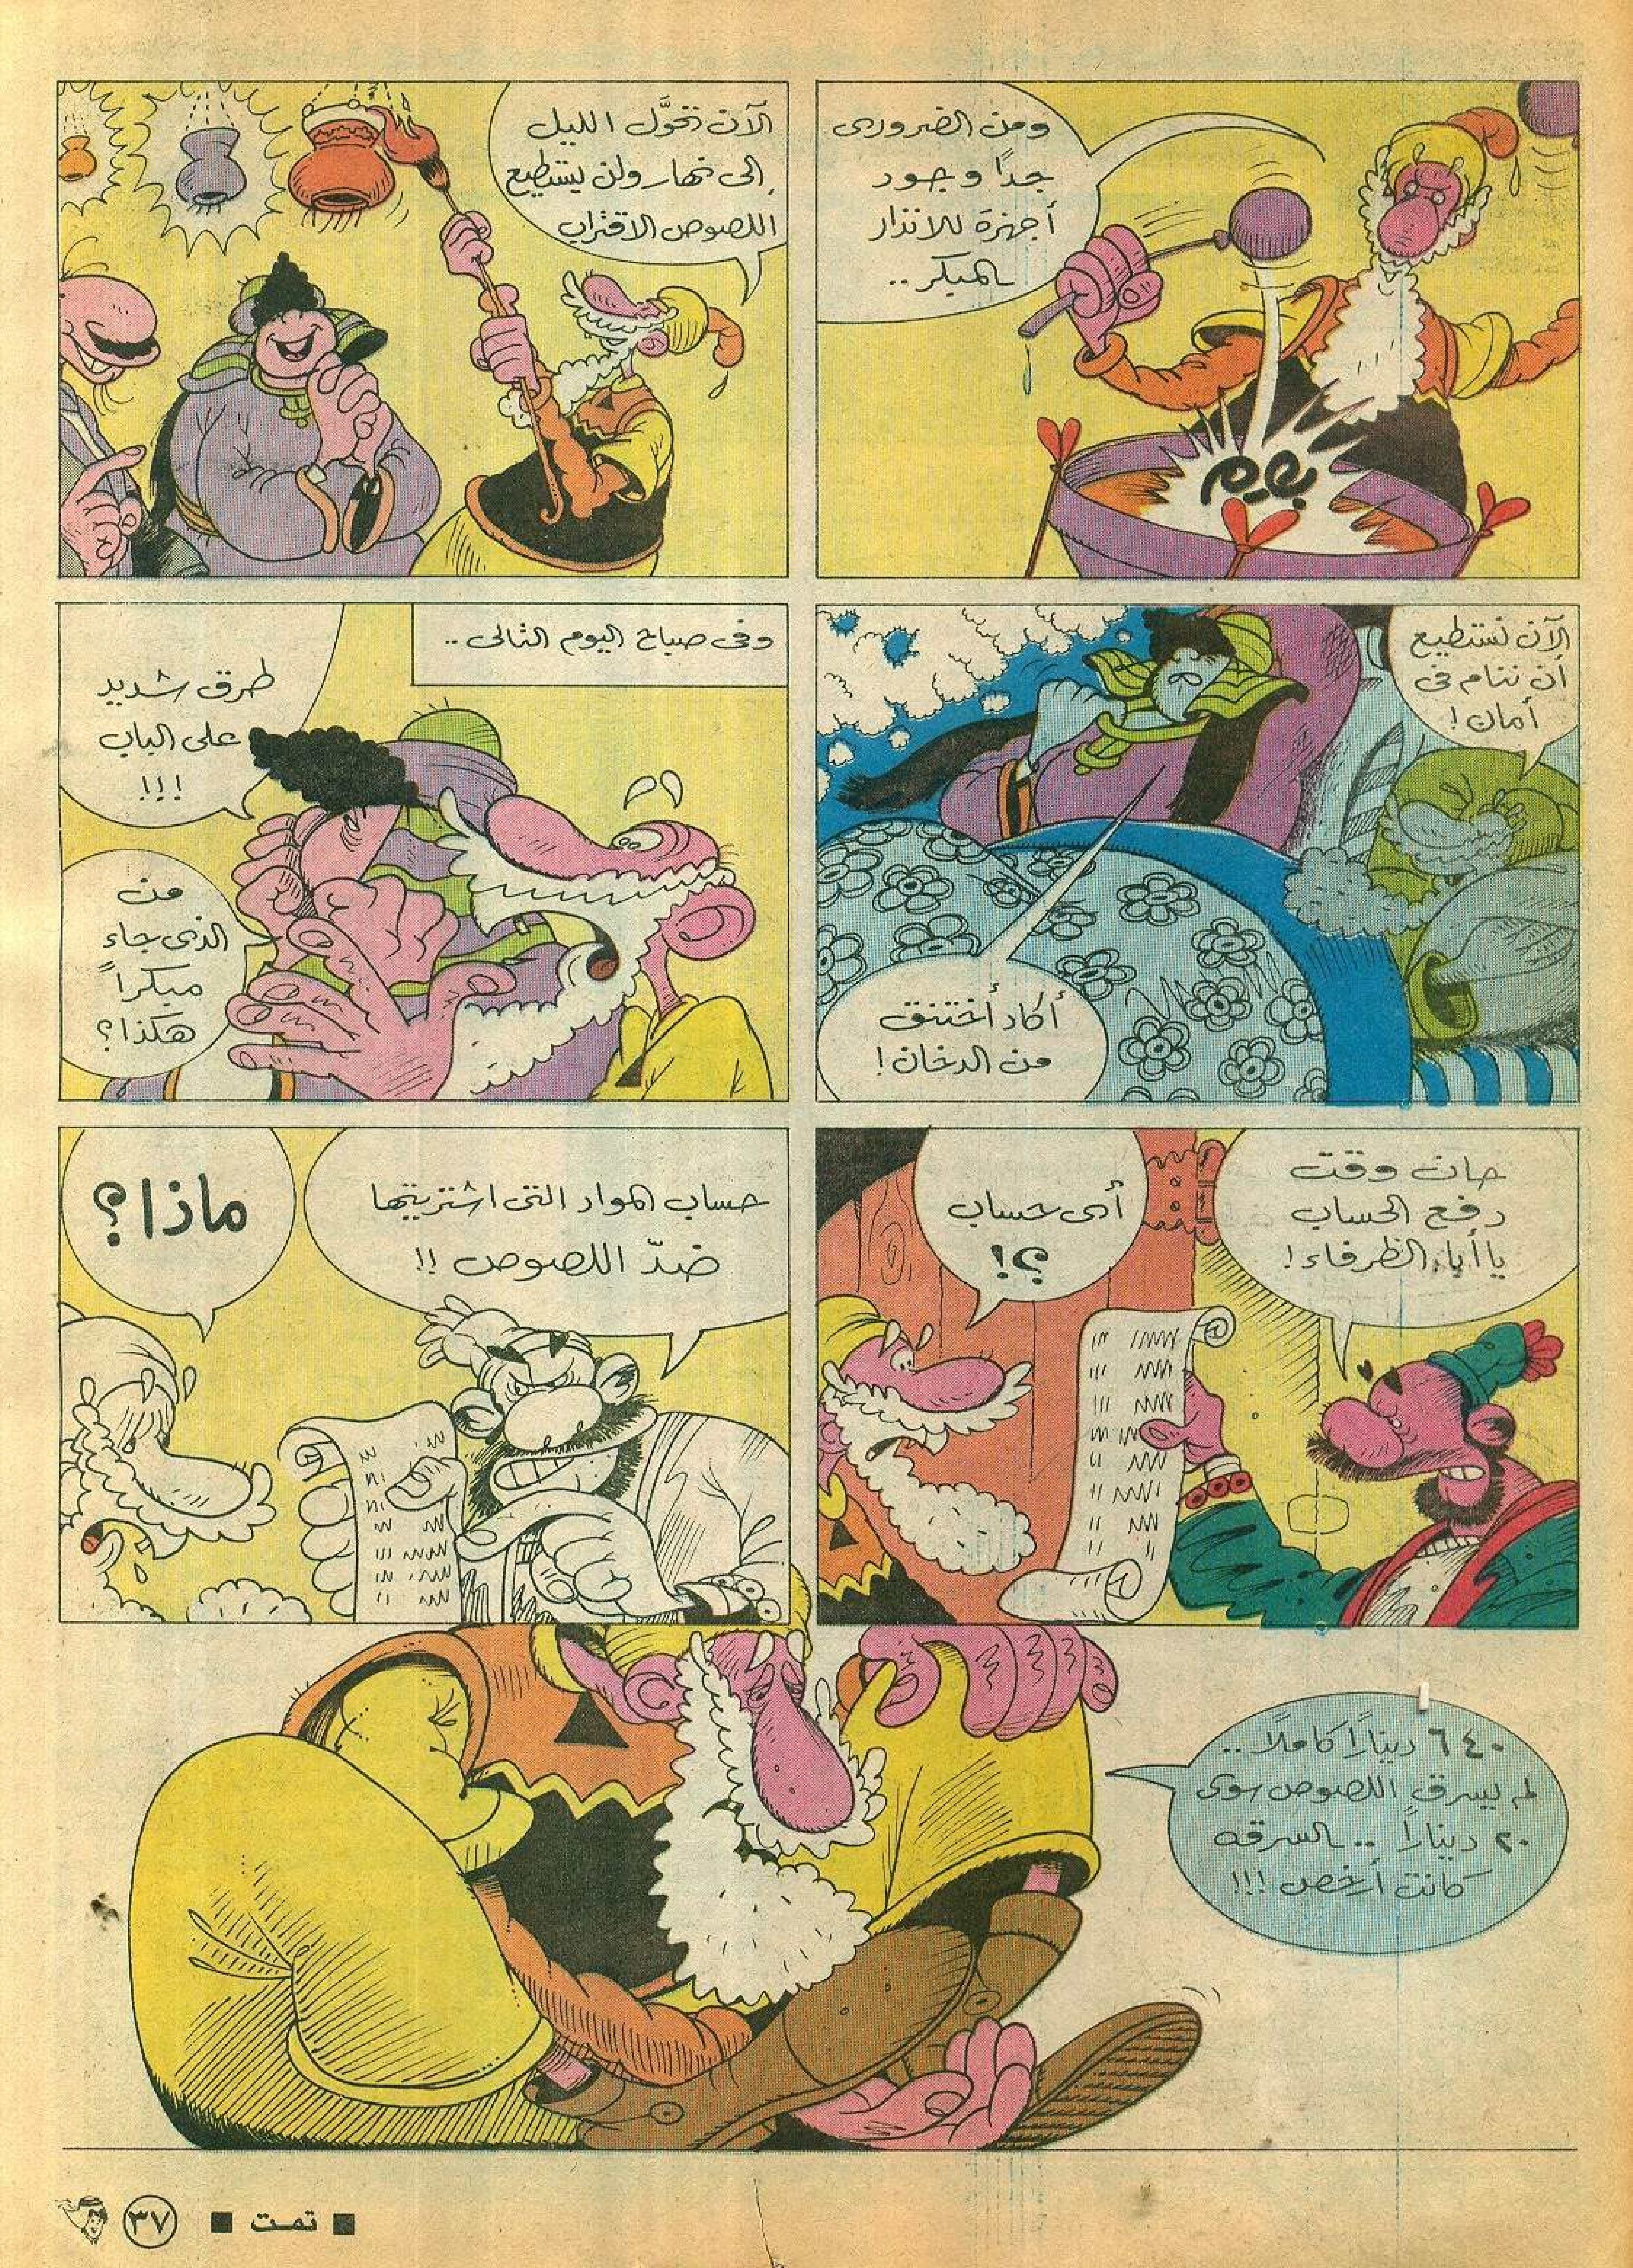 ومن الضرورى
جداً وجود
أجهزة للانذار
المبكر ..
بوم
الآن تحوَّل الليل
إلى نهار ولن يستطيع
اللصوص الاقتراب
الآن نستطيع
أن ننام فى
أمان !
أكاد أختنق
من الدخان !
وفى صباح اليوم التالى ..
طرق شديد
على الباب
!!!
من
الذى جاء
مبكراً
هكذا ؟
حان وقت
دفع الحساب
يا أبا الظرفاء !
أى حساب
؟!
حساب المواد التى اشتريتها
ضدّ اللصوص !!
ماذا ؟
٦٤٠ ديناراً كاملاً ..
لم يسرق اللصوص سوى
٢٠ ديناراً .. السرقه
كانت أرخص !!!
■ تمت ■
٣٧